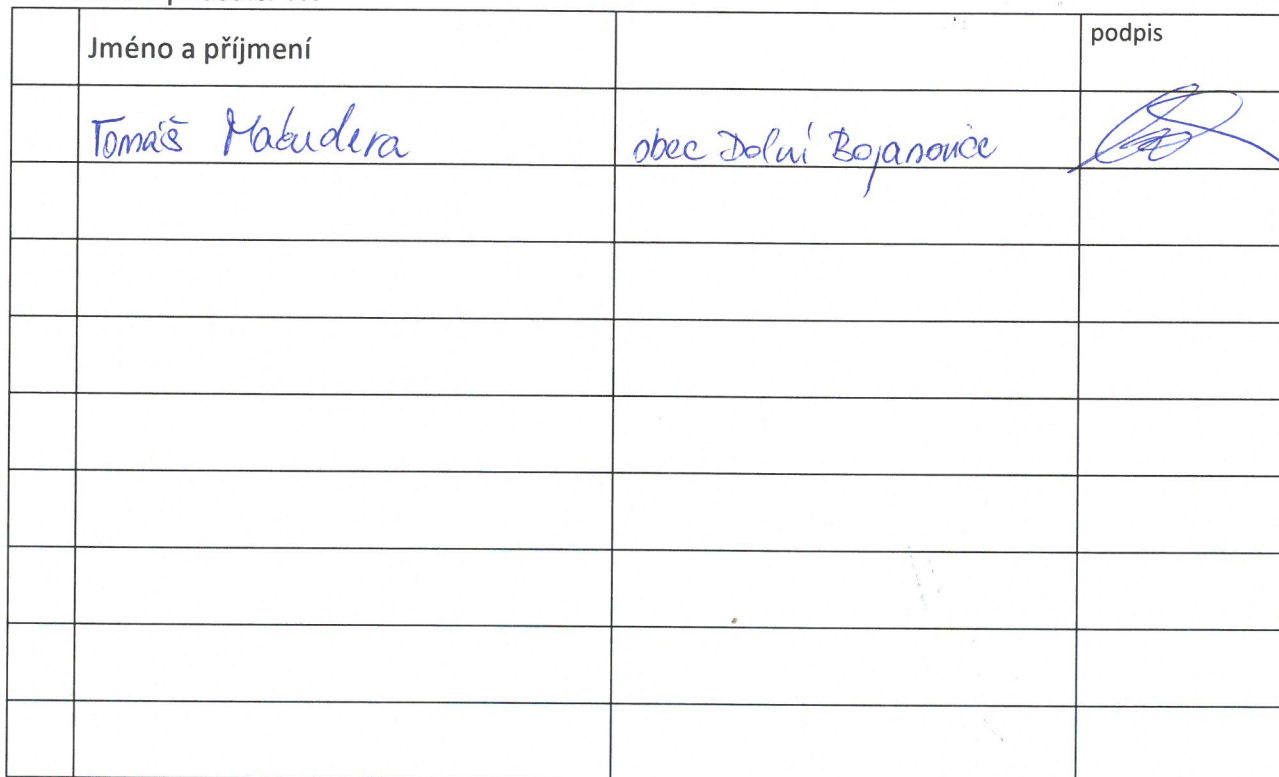 Jméno a příjmení podpis
Tomáš Makudera obec Dolní Bojanovice